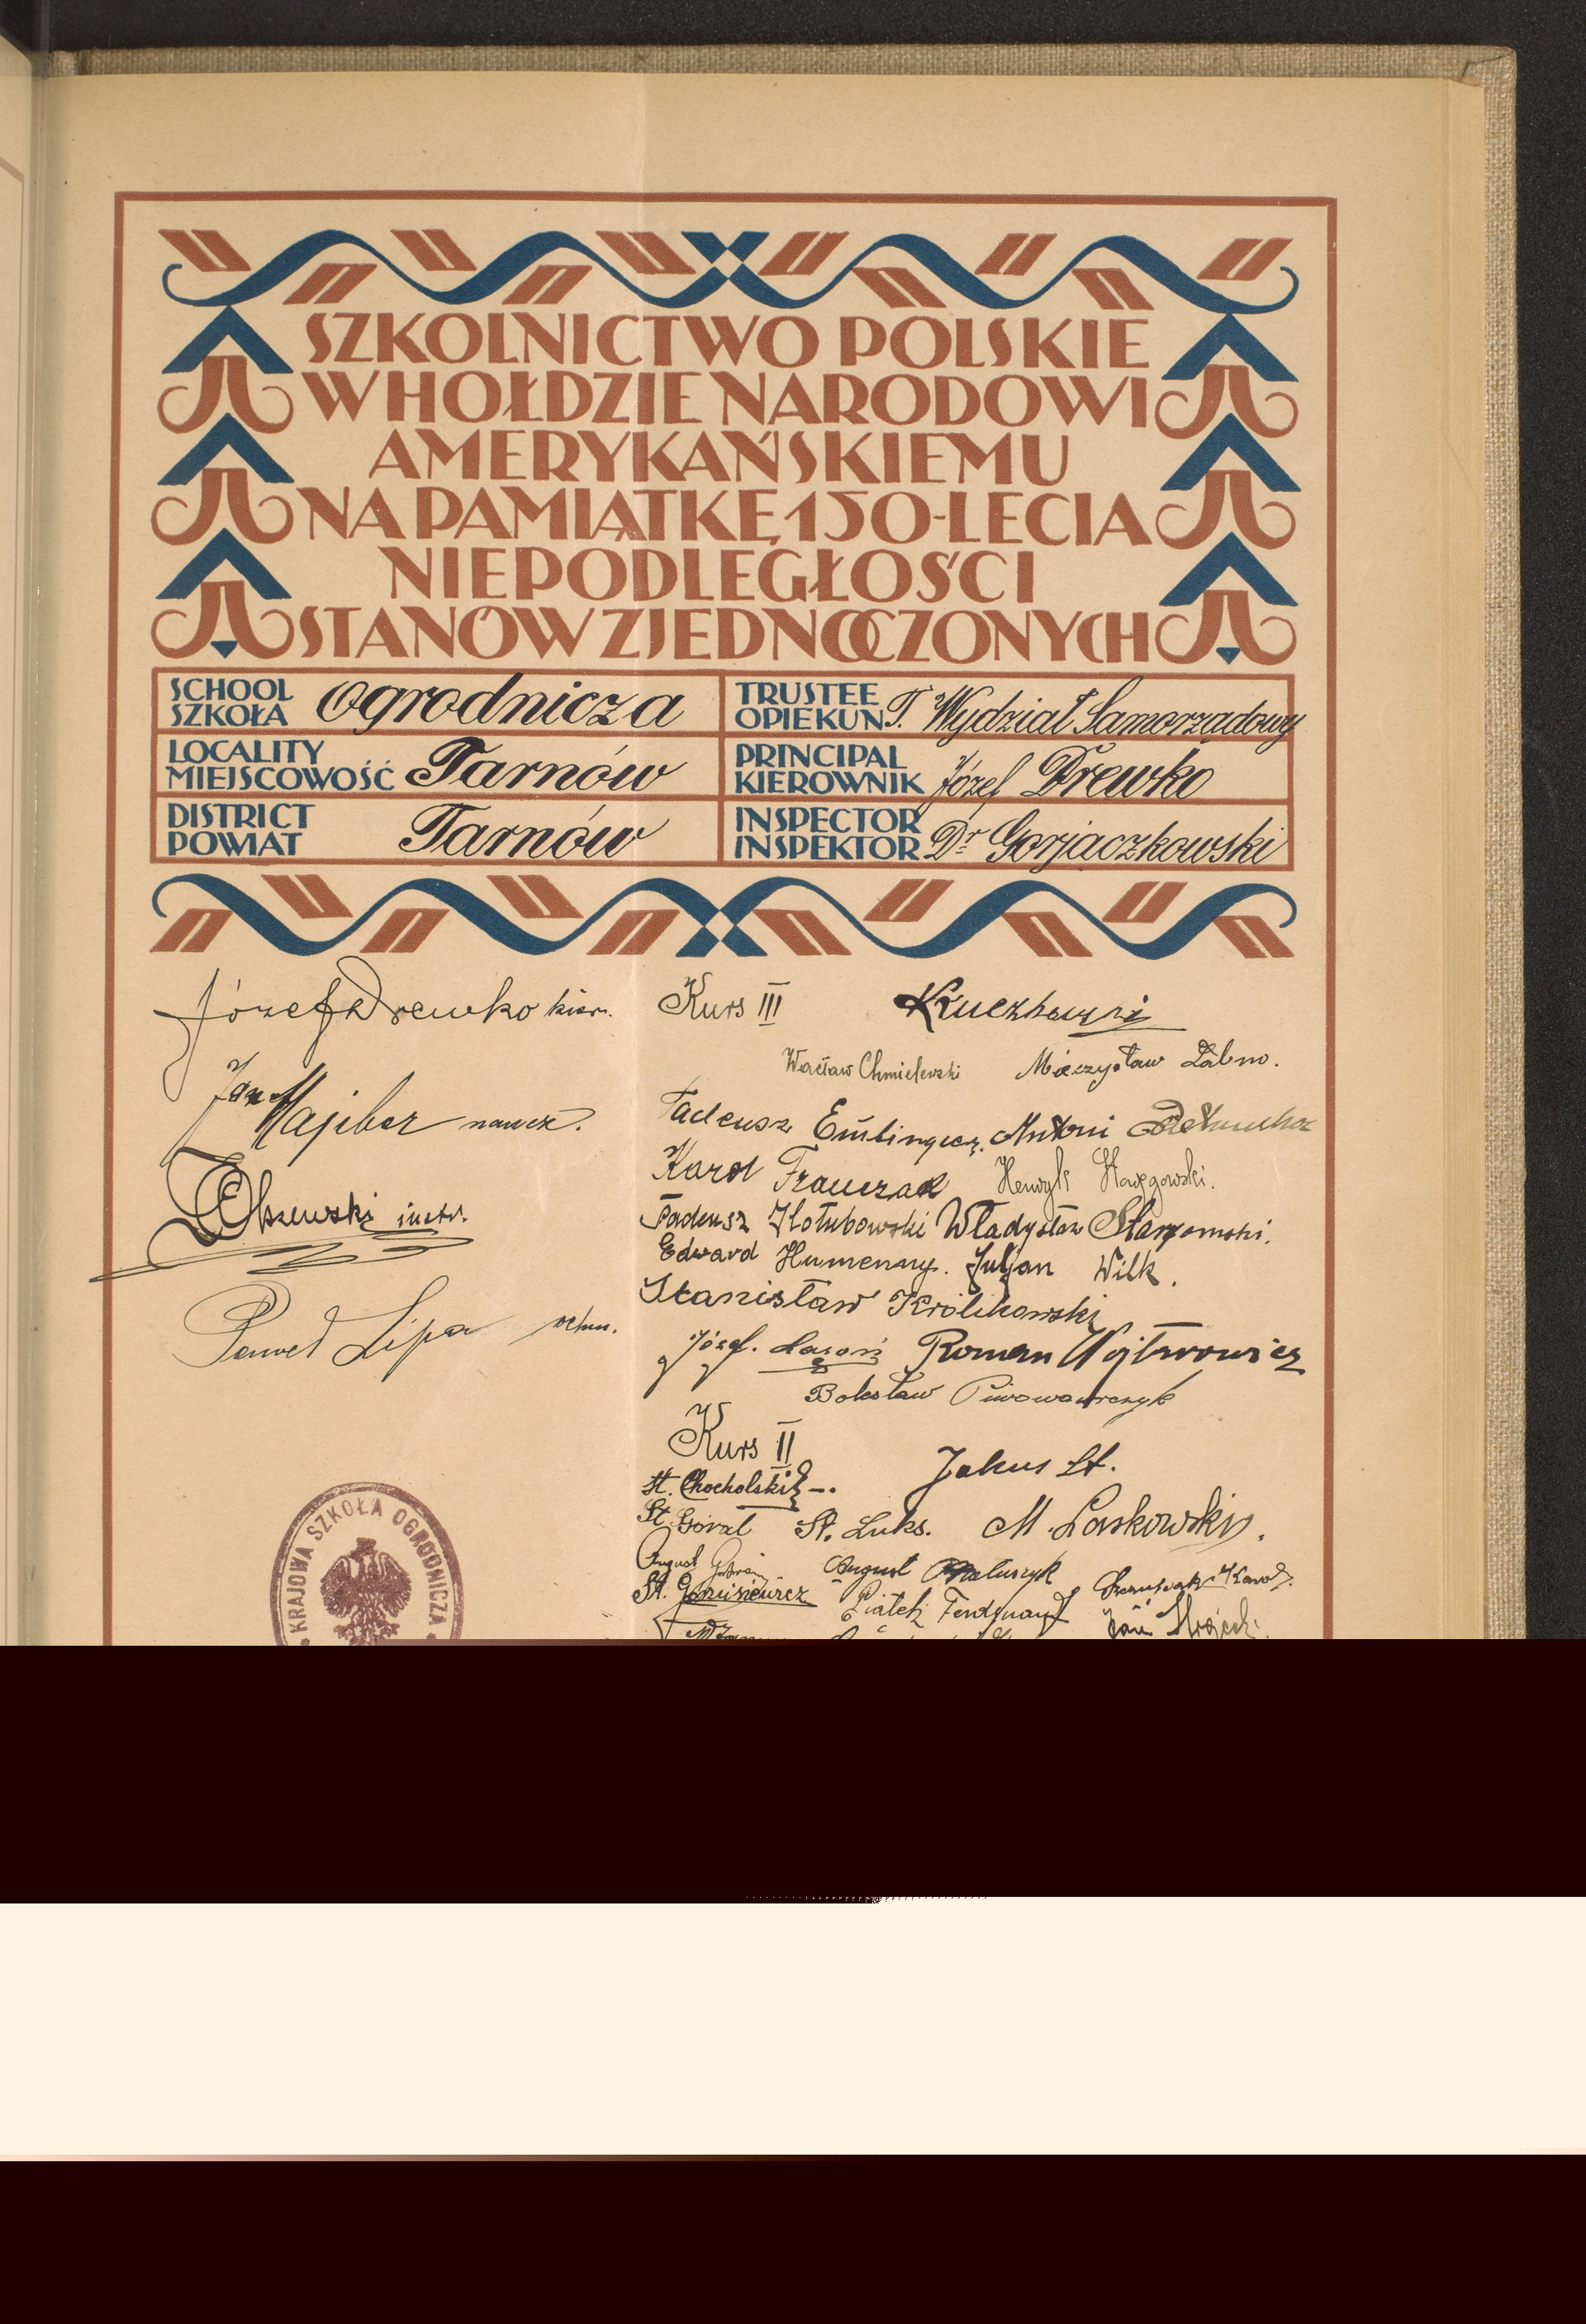 SZKOLNICTWO POLSKIE
W HOŁDZIE NARODOWI
AMERYKAŃSKIEMU
NA PAMIĄTKĘ 150-LECIA
NIEPODLEGŁOŚCI
STANÓW ZJEDNOCZONYCH
SCHOOL
SZKOŁA Ogrodnicza
LOCALITY
MIEJSCOWOŚĆ Tarnów
DISTRICT
POWIAT Tarnów
TRUSTEE
OPIEKUN T. Wydział Samorządowy
PRINCIPAL
KIEROWNIK Józef Drewko
INSPECTOR
INSPEKTOR Dr Gorjaczkowski
Józef Drewko kier.
Jan naucz.
Olszewski instr.
Paweł Lipa
KRAJOWA SZKOŁA OGRODNICZA
Kurs III
Wacław Chmielewski Mieczysław Żabno.
Tadeusz Antoni
Karol Franczak Henryk
Tadeusz Hołubowski Władysław
Edward Humenny. Juljan Wilk.
Stanisław Królikowski
Józef. Lasoń Roman Wojtarowicz
Bolesław Piwowarczyk
Kurs II
Jakus St.
St. Chocholski
St. Góral St. Luks. M. Laskowski.
August August Matuszyk
St. Januszewicz Piątek Ferdynand Jan